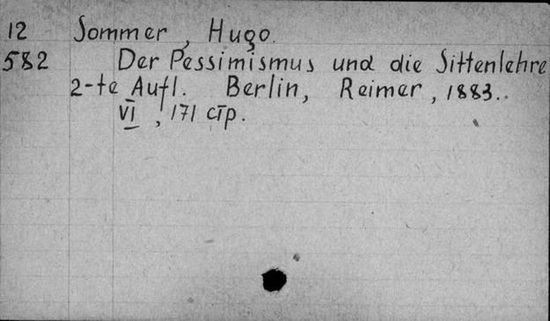 12 Sommer, Hugo.
582 Der Pessimismus und die Sittenlehre
2-te Aufl. Berlin, Reimer, 1883..
VI, 171 стр.